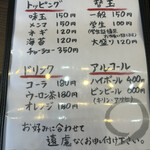 トッピング
味玉 150円
メンマ 150円
ネギ 120円
海苔 120円
チャーシュー 350円
替玉
一般 150円
学生 100円
大盛り 120円
ドリンク
コーラ 180円
ウーロン茶 180円
オレンジ 180円
アルコール
ハイボール 400円
ビンビール 600円
(キリン・アサヒ)
お好みに合わせて
遠慮なくお申し付け下さい。